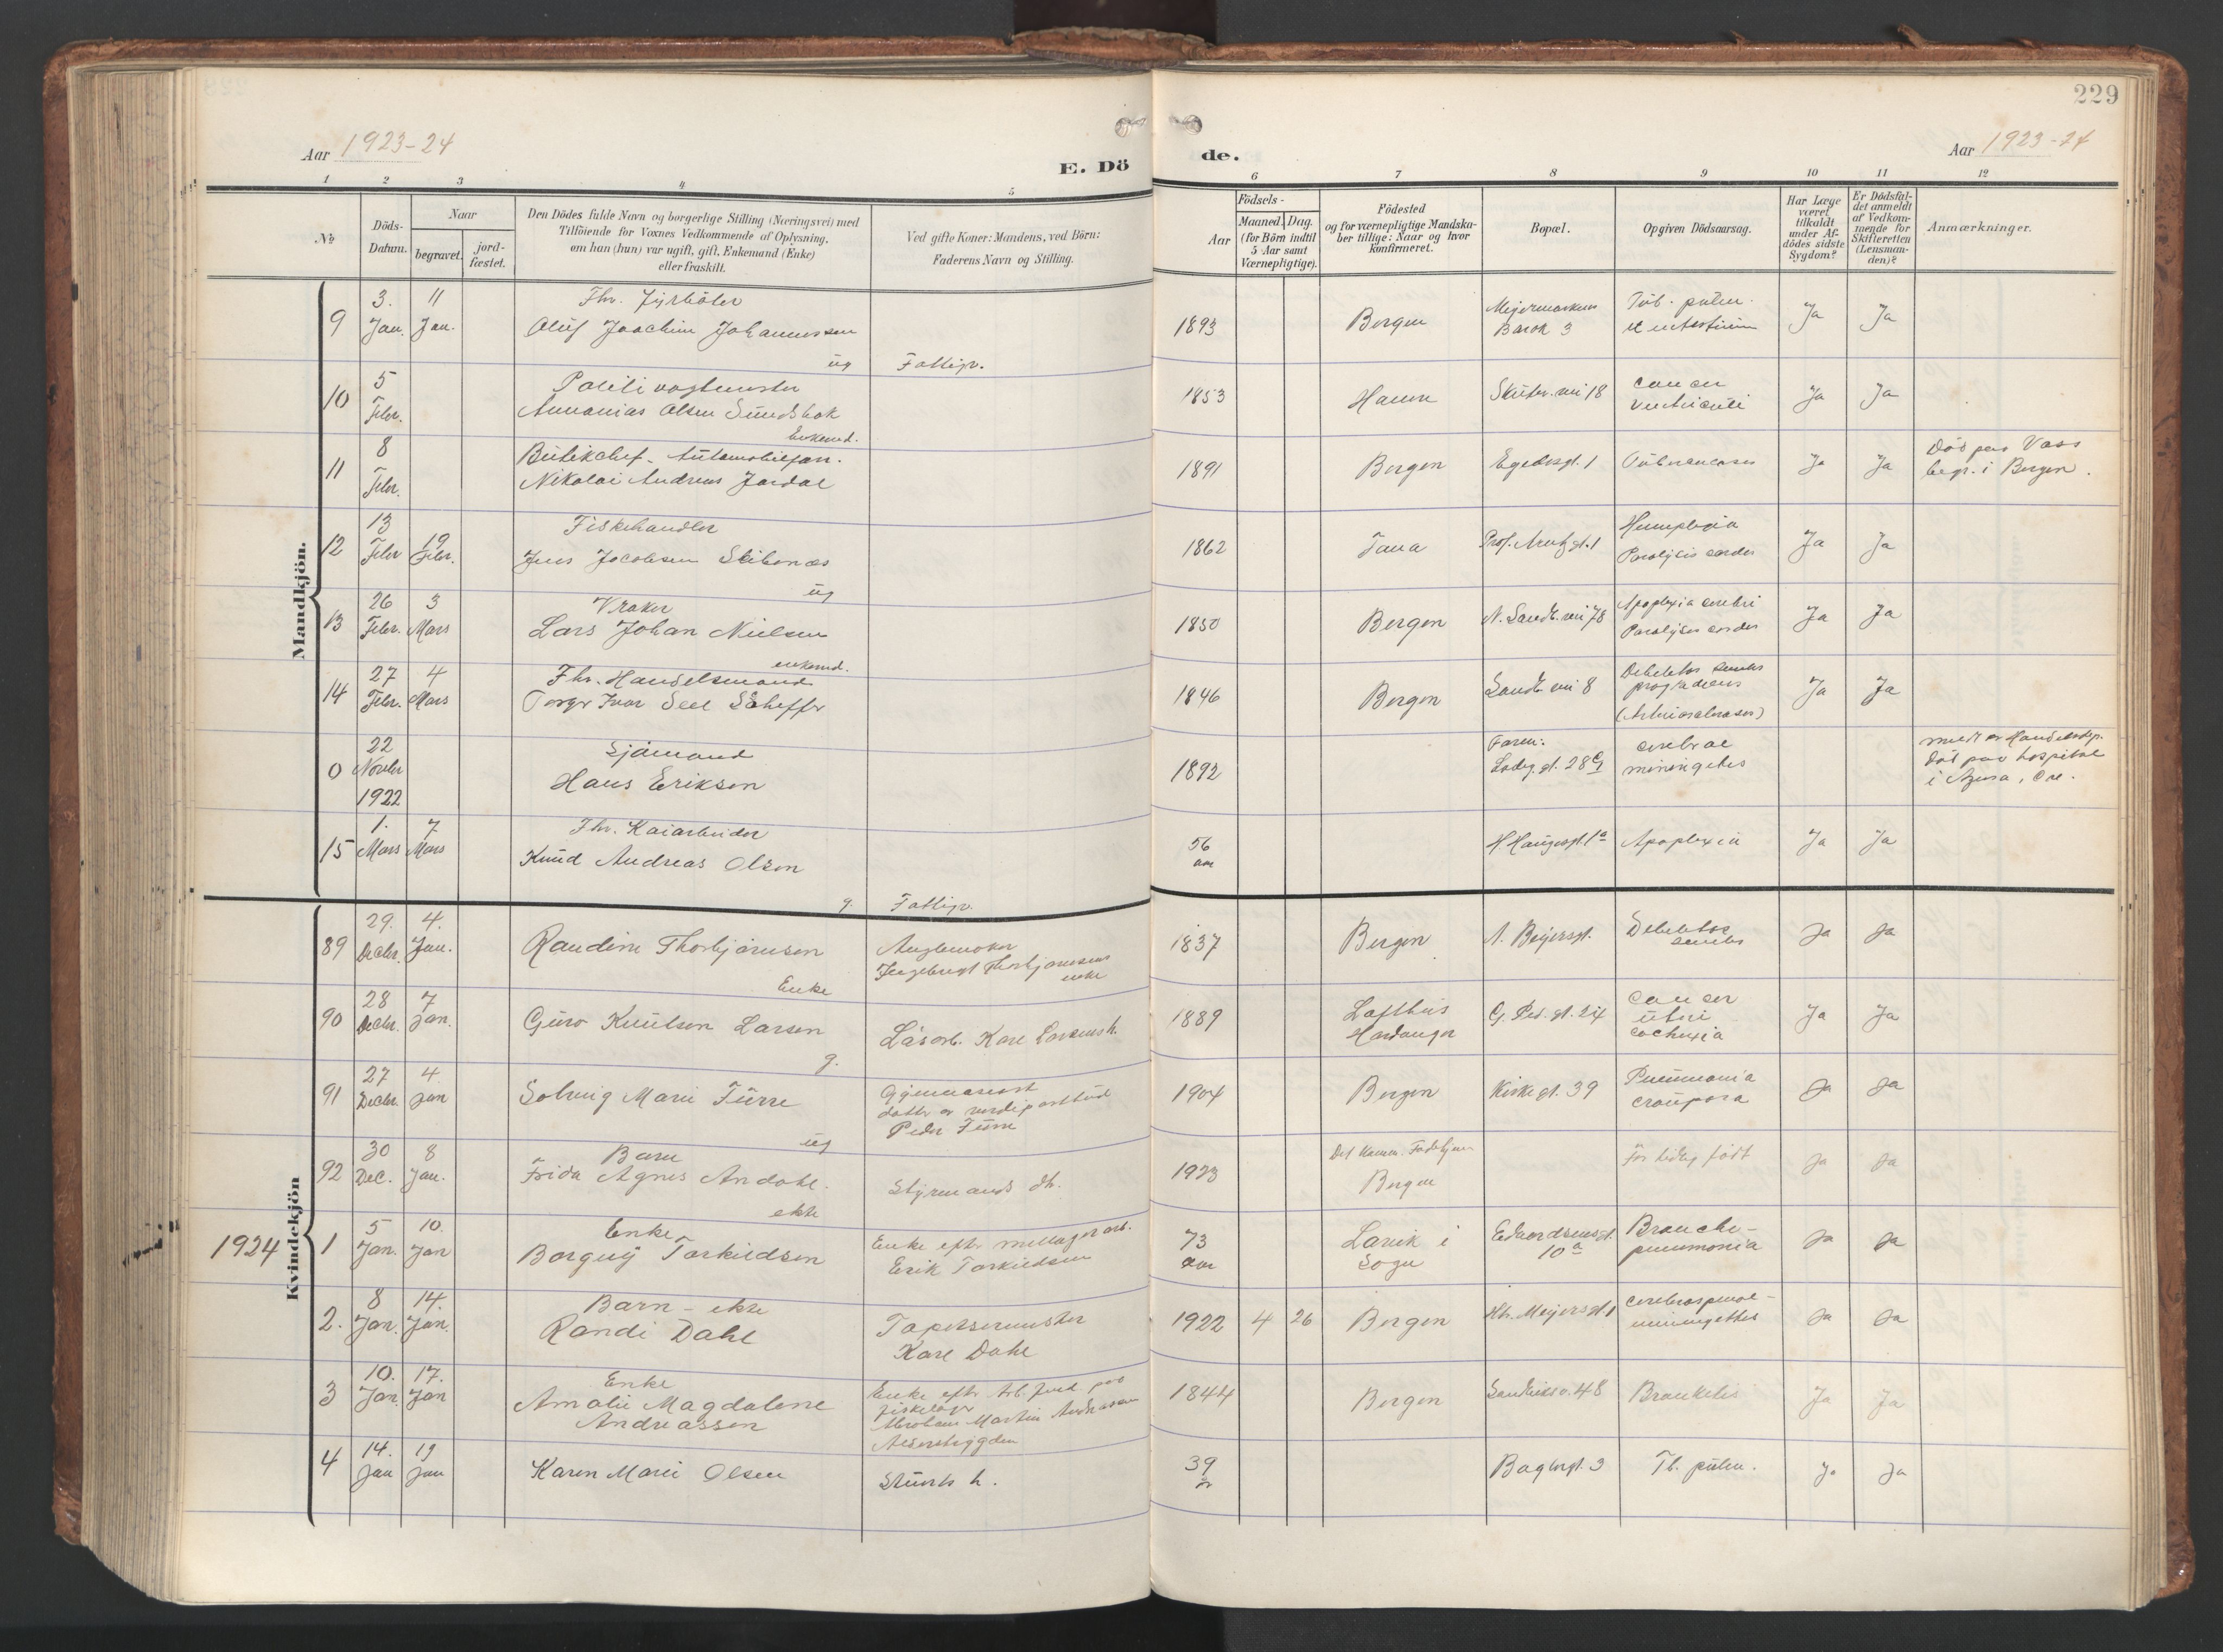 229
Aar 1923-24
E. Dö
de.
Aar 1923-24
1 2 3 4 5 6 7 8 9 10 11 12
№
Döds-
Datum.
Naar
begravet.
jord-
fæstet.
Den Dödes fulde Navn og borgerlige Stilling (Næringsvei) med
Tilföiende for Voxnes Vedkommende af Oplysning,
om han (hun) var ugift, gift, Enkemand (Enke)
eller fraskilt.
Ved gifte Koner: Mandens, ved Börn:
Faderens Navn og Stilling.
Födsels-
Aar
Maaned. Dag.
(for Börn indtil
5 Aar samt
Værnepligtige).
Födested
og for værnepligtige Mandska-
ber tillige: Naar og hvor
konfirmeret.
Bopæl.
Opgiven Dödsaarsag.
Har Læge
været
tilkaldt
under Af-
dödes sidste
Sygdom?
Er Dödsfal-
det anmeldt
af Vedkom-
mende for
Skifteretten
(Lensman-
den)?
Anmærkninger.
Mandkjön.
9 3. Jan. 11 Jan. Fhv. Fyrböter
Oluf Joachim Johannessen
ug Fattigv.
1893 Bergen Barak 3 Tub. pulm. Ja Ja
10 5 Febr. Politivagtmester
Annanias Olsen Sundsbak
Enkemd.
1853 18 cancer
ventriculi Ja Ja
11 8 Febr. Butikchef
Nikolai Andreas Jordal
1891 Bergen Egedesgt. 1 Tuberculosis Ja Ja Död paa Voss
begr. i Bergen.
12 13 Febr 19 Febr. Fiskehandler
Jens Jacobsen
ug
1862 Fana Prof. Arntz gt. 1 Hemiplegia
Paralysis cordis Ja Ja
13 26 Febr. 3 Mars Vraker
Lars Johan Nielsen
enkemd.
1850 Bergen N. Sandv. vei 78 Apoplexia cerebri
Paralysis cordis Ja Ja
14 27 Febr. 4 Mars Fhv. Handelsmand
Ivar Scheffer
1846 Bergen Sandv. vei 8 Debilitas senilis
(Arteriosclerosis) Ja Ja
0 22 Novbr 1922 Sjömand
Hans Erikson
1892 28 cerebral
meningitis
död paa hospital
i
15 1. Mars 7 Mars Fhv. Kaiarbeider
Knud Andreas Olsen
g. Fattigv.
56
aar H. Haugesgt. 1a Apoplexia Ja Ja
Kvindekjön
89 29. Decbr. 4. Jan. Randine Thorbjörnsen
Enke
enke
1837 Bergen A. Beyersgt. Debilitas
senilis Ja Ja
90 28 Decbr. 7 Jan. Guro Knutsen Larsen
g.
Karl Larsens h.
1889 Lofthus
Hardanger G. Ped. gt. 24 cancer
uteri
cachexia Ja Ja
91 27 Decbr. 4 Jan Solveig Marie Furre
ug
datter av
Peder Furre
1904 Bergen Kirkegt. 39 Pneumonia
crouposa Ja Ja
92 30 Dec. 8 Jan. Barn
Frida Agnes Andahl.
ekte
Styrmands dtr.
1923 Bergen For tidlig födt Ja Ja
1924
1 5 Jan. 10. Jan Enke
Borghy Torkildsen
Enke efter
Erik Torkildsen
73
aar Lavik i
Sogn Edvardsensgt.
10a Broncho-
pneumonia Ja Ja
2. 8 Jan. 14. Jan. Barn - ekte
Randi Dahl
Tapetsermester
Karl Dahl
1922 4 26 Bergen Hbr. Meyersgt 1 Cerebrospinal-
meningitis Ja Ja
3 10. Jan. 17. Jan Enke
Amalie Magdalene
Andreassen
Enke efter
Abraham Martin Andreasen
1844 Bergen 48 Bronkitis Ja Ja
4 14. Jan 19 Jan Karen Marie Olsen
39
år Baglergt. 3 Tb. pulm. Ja Ja